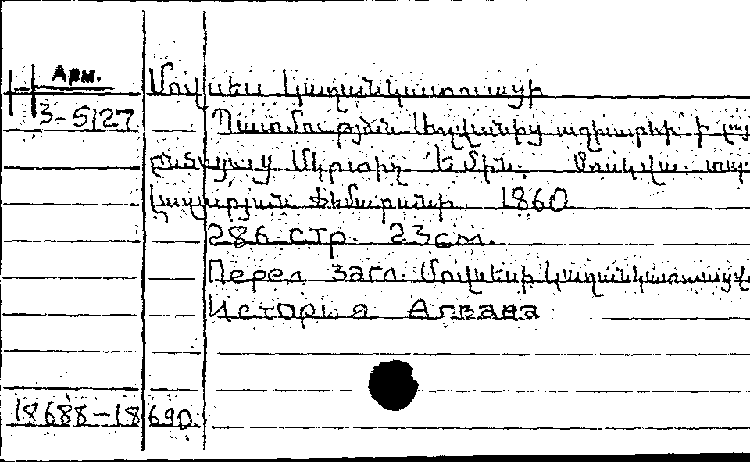 Арм.
Մովսես Կաղանկատուացի
3-5127
Պատմության Աղվանից աշխարհի ի լայ
ընծայեաց Մկրտիչ Էմին. Մոսկվա. տպ
Լազարյան Ճեմարանի 1860
286 стр. 23см.
Перед загл. Մովսեսի Կաղանկատուացվ
Истор Агвана
18688-18690